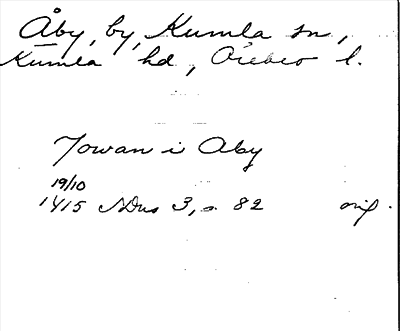 Åby, by, Kumla sn,
Kumla hd, Örebro l.
Jowan i Aby
19/10
1415 SDns 3, s. 82 orig.